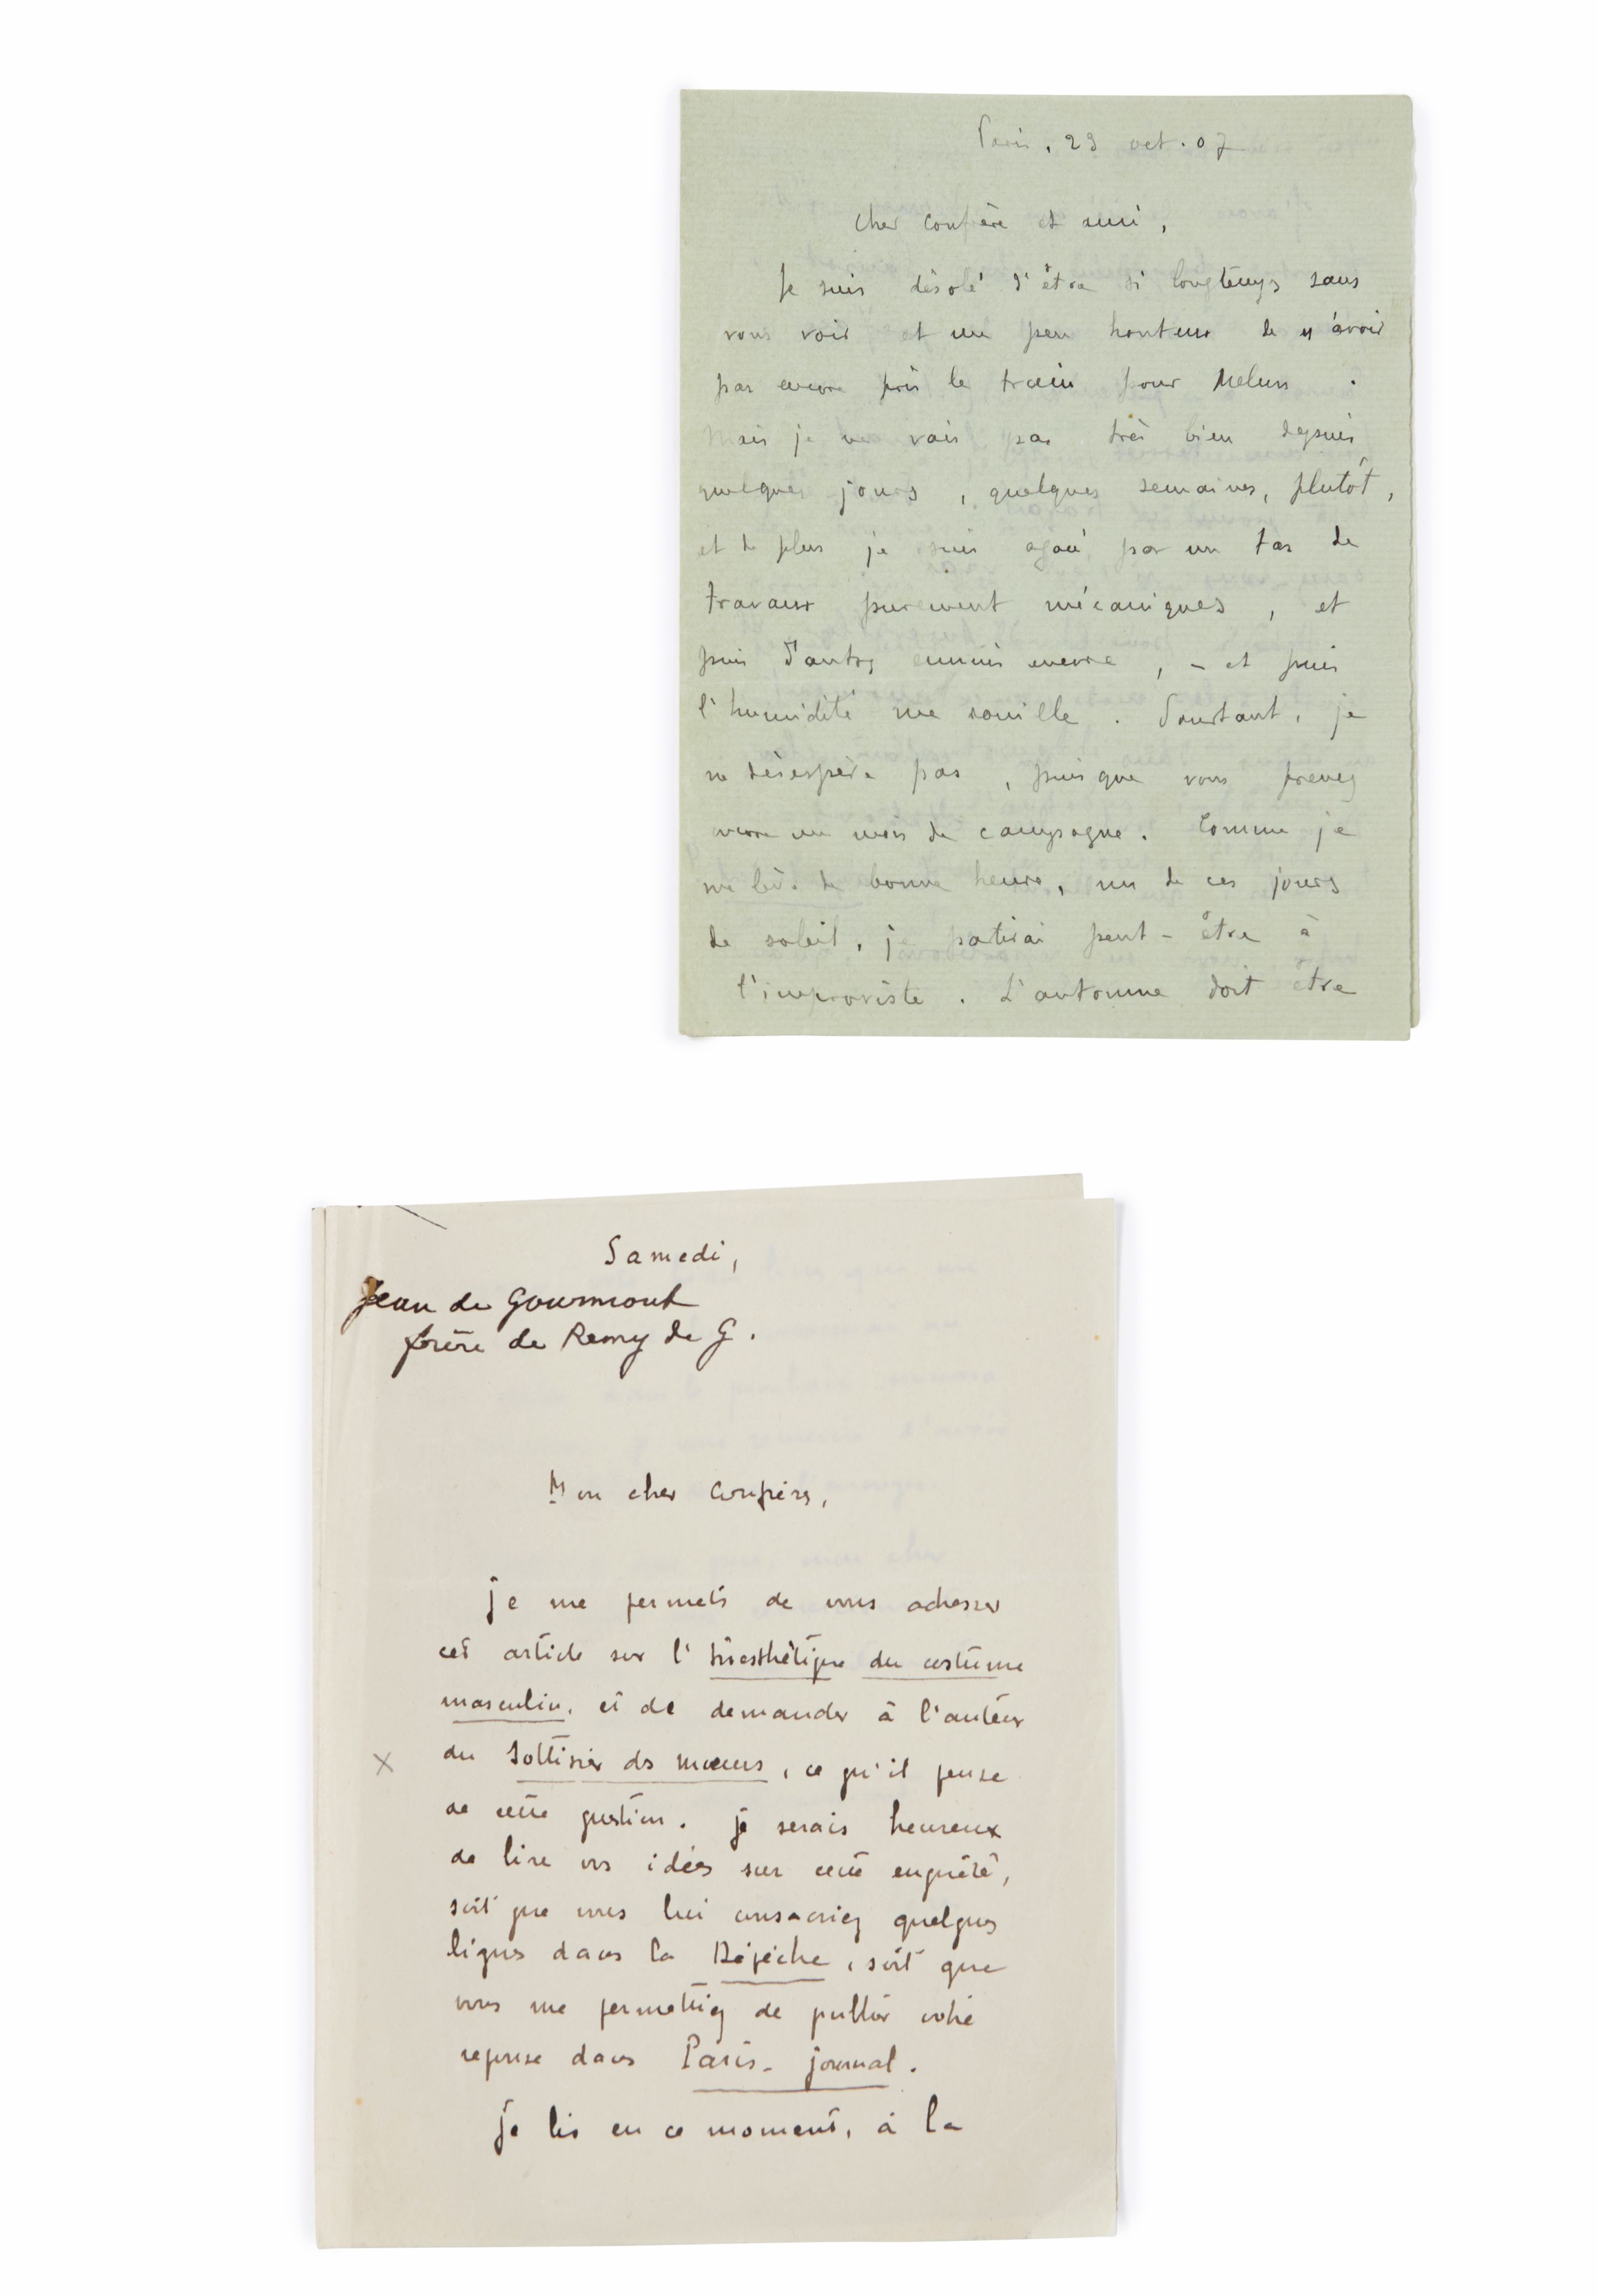 Paris, 23 oct. 07
Cher confrère et ami,
Je suis désolé d'être si longtemps sans
vous voir et un peu honteux de n'avoir
pas encore pris le train pour Melun.
Mais je ne vais pas très bien depuis
quelques jours, quelques semaines, plutôt,
et de plus je suis agacé par un tas de
travaux purement mécaniques, et
puis d'autres ennuis encore, – et puis
l'humidité me rouille. Pourtant, je
ne désespère pas, puisque vous prenez
encore un mois de campagne. Comme je
me lève de bonne heure, un de ces jours
de soleil, je partirai peut-être à
l'improviste. L'automne doit être
Samedi,
Jean de Gourmont
frère de Remy de G.
Mon cher Confrère,
je me permets de vous adresser
cet article sur l'Inesthétique du costume
masculin, et de demander à l'auteur
du Sottisier des mœurs, ce qu'il pense
de cette question. je serais heureux
de lire vos idées sur cette enquête,
soit que vous lui consacriez quelques
lignes dans la Dépêche, soit que
vous me permettiez de publier votre
réponse dans Paris-journal.
je lis en ce moment, à la